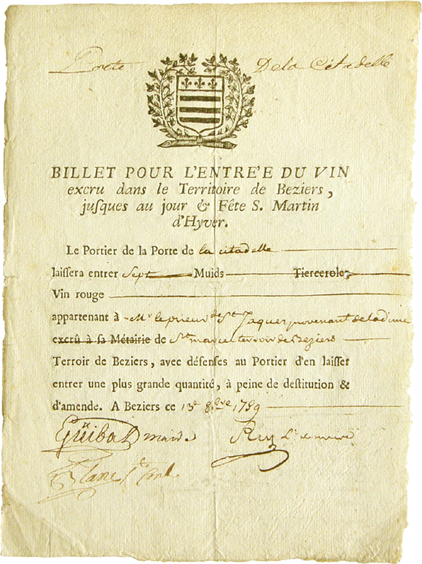 Porte De la Citadelle
BILLET POUR L'ENTRÉE DU VIN
excru dans le Territoire de Beziers,
jusques au jour & Fête S. Martin
d'Hyver.
Le Portier de la Porte de la citadelle
laissera entrer sept Muids Tiercerole
Vin rouge
appartenant à Mr le prieur de St Jaques provenant de la dime
excru à sa Métairie de St marcel terroir de Beziers
Terroir de Beziers, avec défenses au Portier d'en laisser
entrer une plus grande quantité, à peine de destitution &
d'amende. A Beziers ce 13e 8bre 1789
Guibal Rey